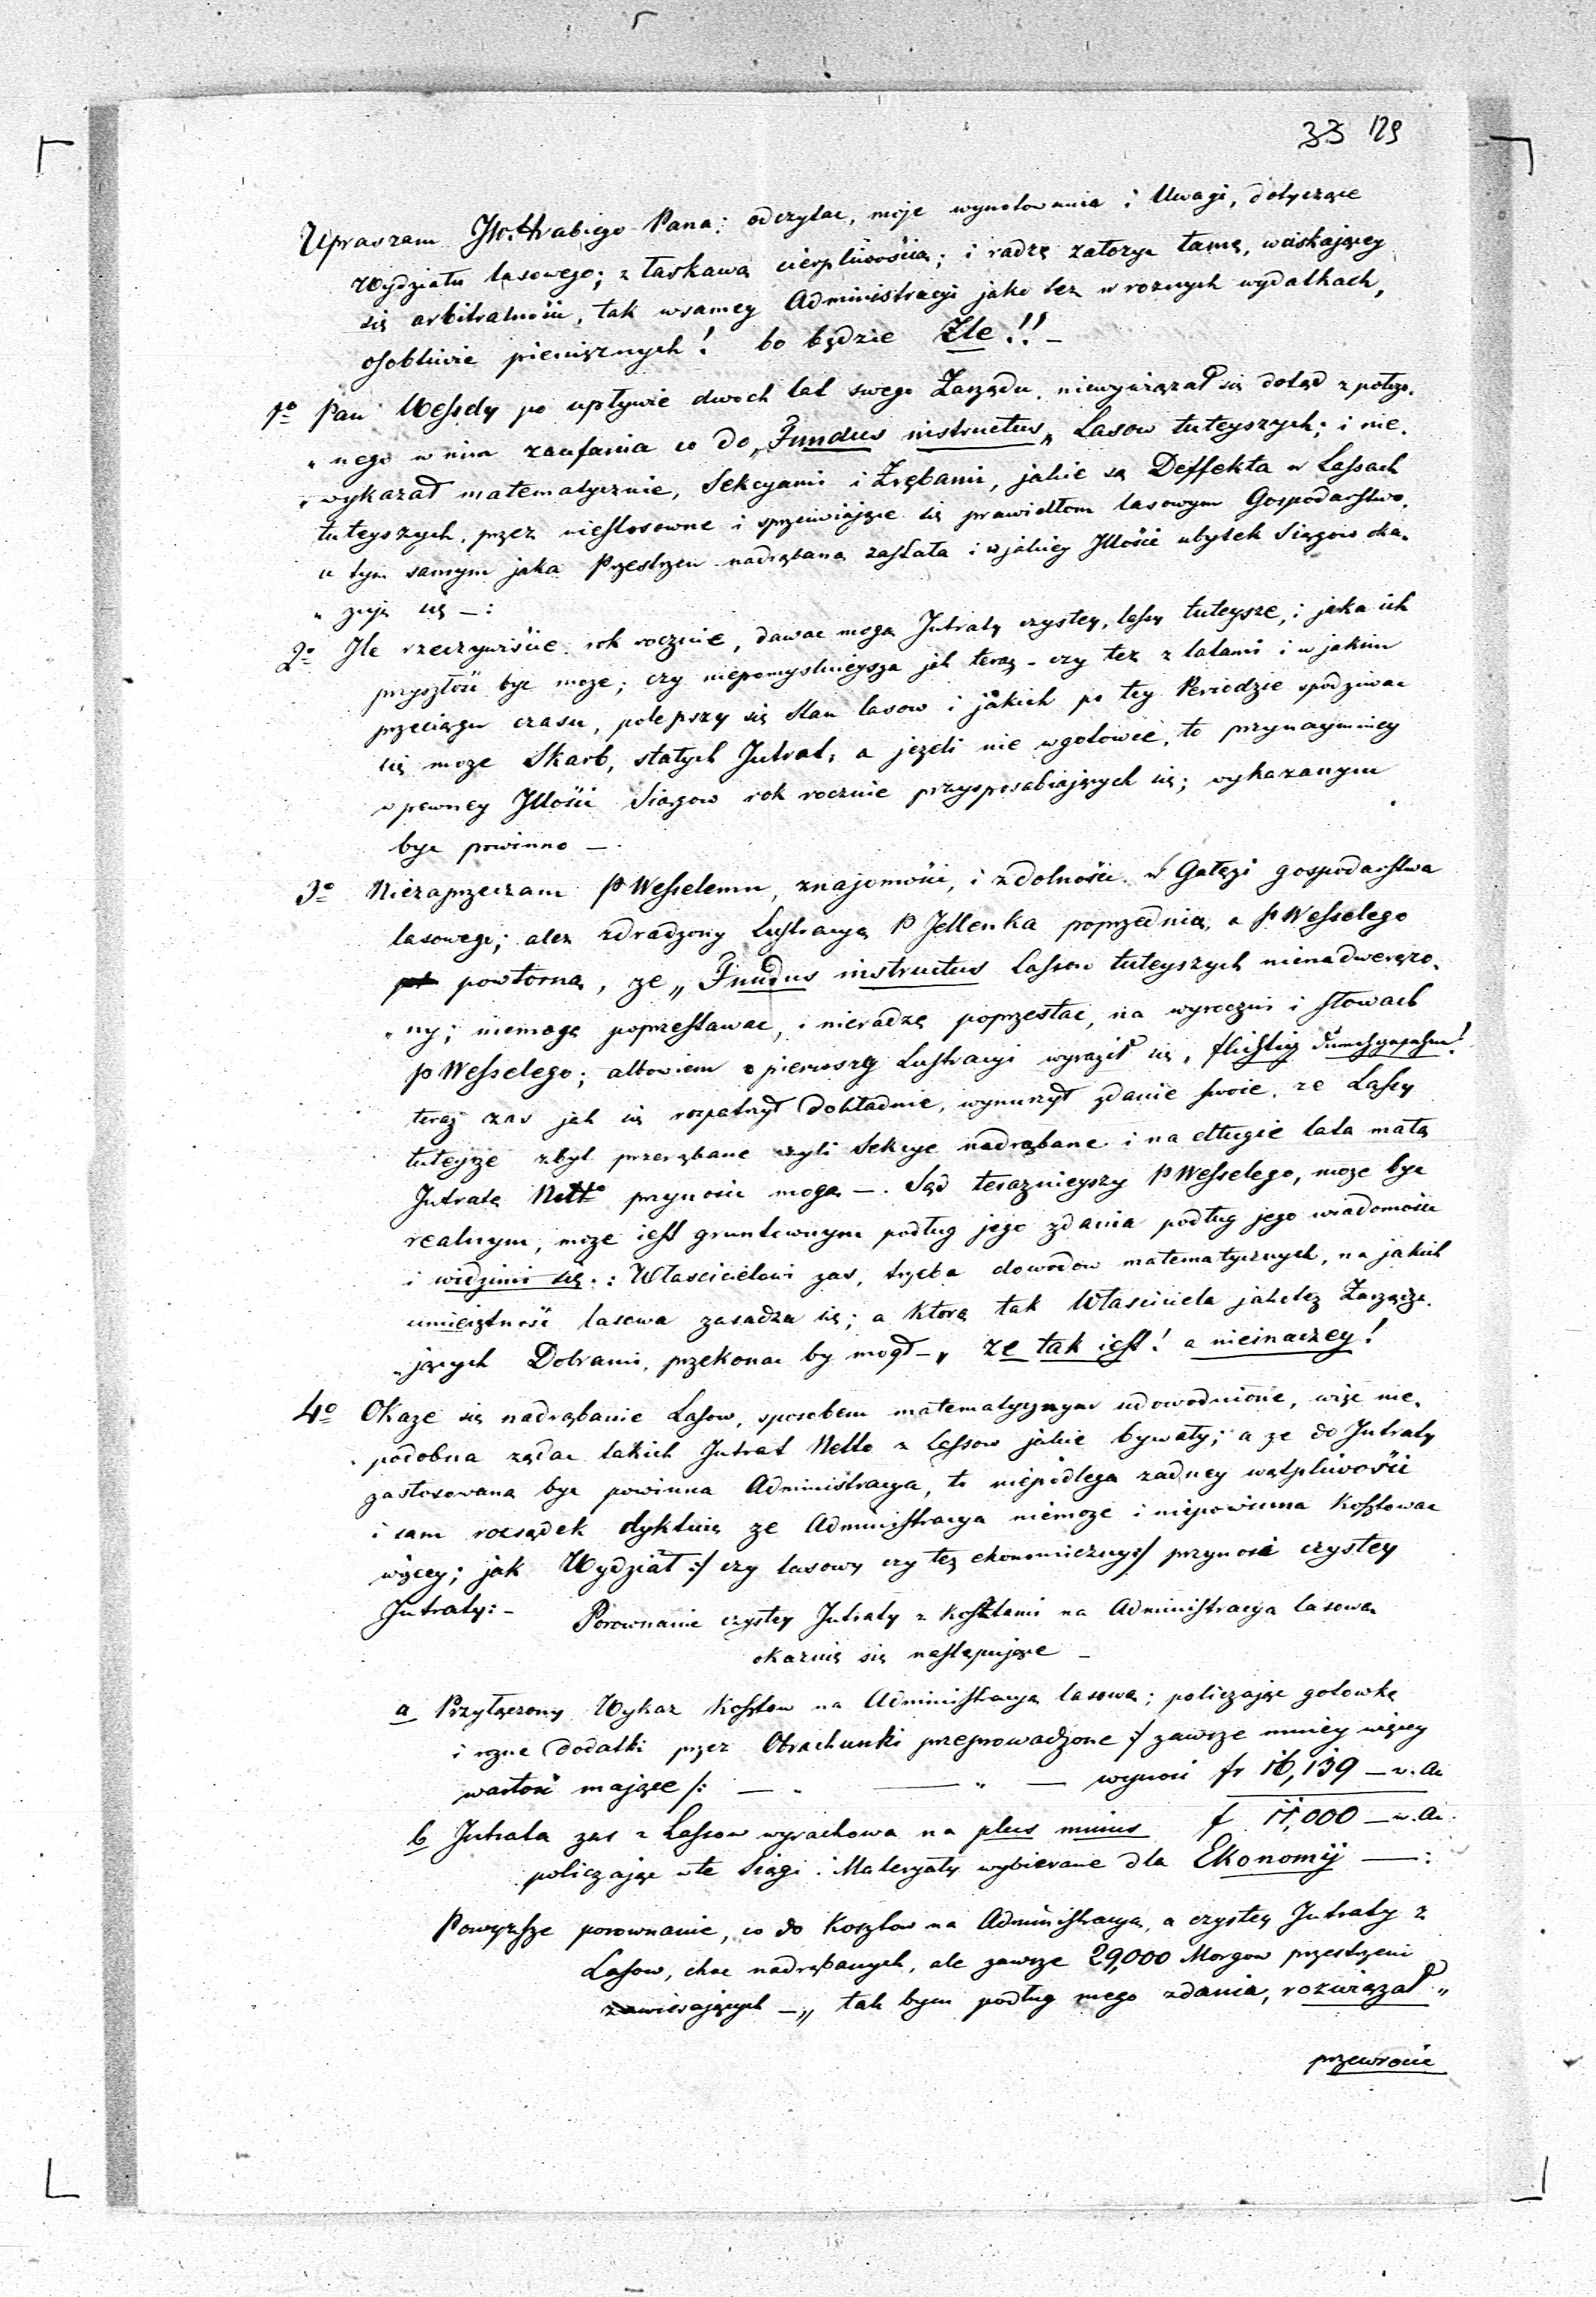 33 129
Upraszam JW. Hrabiego Pana: odczytac, moje wynotowania i Uwagi, dotyczące
Wydziału lasowego; z łaskawą cierpliwością; i radzę załozyc tamę, wciskającey
się arbitralności, tak wsamey Administracyi jako tez w roznych wydatkach,
osobliwie pieniężnych! bo będzie Zle!! —
1o Pan Wessely po upływie dwoch lat swego Zarządu, niewywiązał się dotąd z połozo„
„nego w nim zaufania co do „Fundus instructus„ Lasow tuteyszych; i nie„
„wykazał matematycznie, Sekcyami i Zrębami, jakie są Deffekta w Lassach
tuteyszych, przez niestosowne i sprzeciwiające się prawidłom lasowym Gospodarstwo,
a tym samym jaka Przestrzen nadrąbaną została i w jakiey Jllości ubytek Siągow oka„
„zuje się —:
2o Jle rzeczywiście rok rocznie, dawac mogą Jntraty czystey, lassy tuteysze, i jaka ich
przyszłość byc moze; czy niepomyslnieysza jak teraz - czy tez z latami i w jakim
przeciągu czasu, polepszy się stan lasow i jakich po tey Periodzie spodziwac
się moze Skarb, stałych Jntrat, a jeżeli nie wgotowce, to przynaymniey
w pewney Jllości Siągow rok rocznie przysposabiających się; wykazanym
byc powinno —.
3o Niezaprzeczam P Wesselemu, znajomości, i zdolności w Gałęzi gospodarstwa
lasowego; alez zdradzony Lustracyą P Jellenka poprzednią, a P Wesselego
powtorną, ze „Fundus instructus Lassow tuteyszych nienadweręzo„
„ny; niemogę poprzestawac, i nieradzę poprzestac, na wyroczni i słowach
P Wesselego; albowiem o pierwszey Lustracyi wyraził się „ flüchtig durchgegangen!
teraz zas jak się rozpatrzył dokładnie, wynurzył zdanie swoie, ze Lassy
tuteysze zbyt przerąbane czyli Sekcye nadrąbane i na długie lata małą
Jntratę Netto przynosic mogą —. Sąd terazniejszy P Wesselego, moze byc
realnym, moze iest gruntownym podług jego zdania podług jego wiadomości
i widzimi się.: Włascicielowi zas, trzeba dowodow matematycznych, na jakich
umieiętność lasowa zasadza się; a ktorą tak Własciciela jakotez Zarządza„
„jących Dobrami, przekonac by mogł —„ ze tak iest! a nieinaczey!
4o Okaze się nadrąbanie Lasow, sposobem matematycznym udowodnione, więc nie„
„podobna ządac takich Jntrat Netto z Lassow jakie bywały; a ze do Jntraty
zastosowaną byc powinna Administracya, to niepodlega zadney wątpliwości
i sam rozsądek dyktuie ze Administracya niemoze i niepowinna Kosztowac
więcey; jak Wydział :/ czy lasowy czy tez ekonomiczny :/ przynosi czystey
Jntraty: -
Porownanie czystey Jntraty z Kosztami na Administracyą lasową
okazuie się następujące —
a Przyłączony Wykaz Kosztow na Administracyą lasową; policzając gotowkę
i rozne dodatki przez Obrachunki przeprowadzone :/ zawsze mniey więcey
wartość mające /: — „ — „ — wynosi fr 16,139 — w. a.
b Jntrata zas z Lassow wyrachowa na plus minus f 11,000 — w. a.
policzając wte Siągi i Materyały wybierane dla Ekonomij —:
Powyzsze porownanie, co do Kosztow na Administracyą, a czystey Jntraty z
Lasow, choc nadrąbanych, ale zawsze 29,000 Morgow przestrzeni
zawierających —„ tak bym podług mego zdania, rozwiązał „
przewrocic